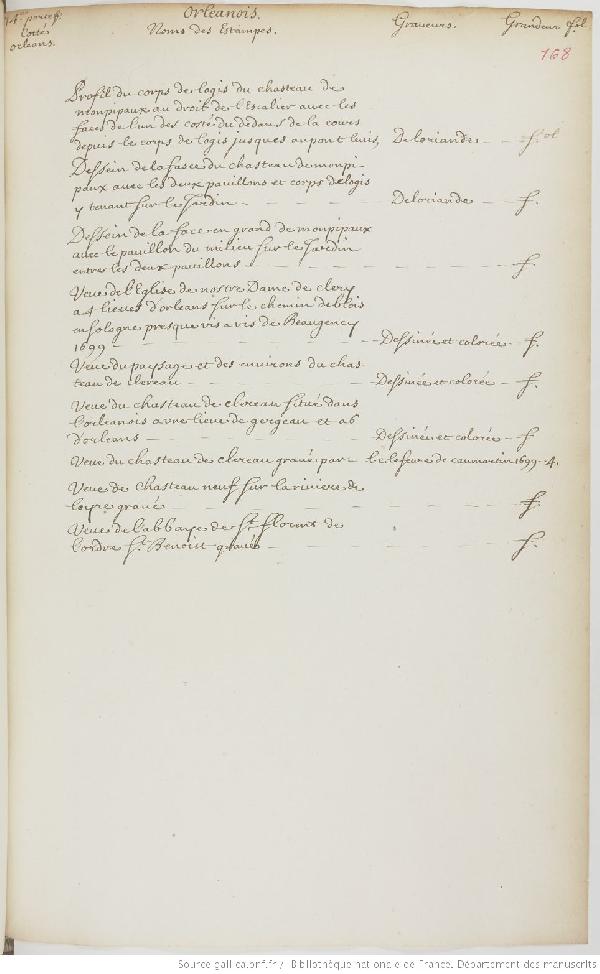 Orleanois.
14e. portef. Noms des Estampes. Graveurs. Grandeur fol.
orleans.
168
Profil du corps de logis du chasteau de
monpipaux au droit de l'Escalier avec les
faces de l'un des costé du dedans de la cours
depuis le corps de logis jusques au pont luis, Deloriande - fol
Dessein de la face du chasteau de monpi-
paux avec les deux pavillons et corps de logis
y tenant sur le Jardin - Deloriande - f.
Dessein de la face en grand de monpipaux
avec le pavillon du milieu sur le Jardin
entre les deux pavillons - f
Veue de l'Eglise de nostre Dame de clery
a 4 lieues d'orleans sur le chemin de blois
en sologne presque vis a vis de Beaugency
1699 - Dessinée et colorée - f.
Veue du paysage et des environs du chas-
teau de clereau - Dessinée et colorée - f.
Veue du chasteau de clereau situé dans
l'orleanois a une lieue de gergeau et a 6
d'orleans - Dessinée et colorée - f
Veue du chasteau de clereau gravé par - le Lefevre de caumartin 1699 - 4.
Veue de Chasteau neuf sur la riviere de
loire gravé - f.
Veue de l'abbaye de St. florent de
l'ordre St. Benoist gravée - f.
Source gallica.bnf.fr / Bibliothèque nationale de France. Département des manuscrits